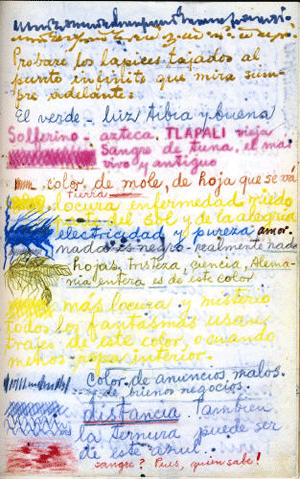 Probare los lapices tajados al
punto infinito que mira siem-
pre adelante:
El verde - luz tibia y buena
Solferino - azteca. TLAPALI vieja
Sangre de tuna, el mas
vivo y antiguo
color de mole, de hoja que se va
tierra
locura enfermedad miedo
parte del sol y de la alegria
electricidad y pureza amor.
nada es negro - realmente nada
hojas, tristeza, ciencia, Alema-
nia entera es de este color
más locura y misterio
todos los fantasmas usan
trajes de este color, o cuando
menos ropa interior.
Color de anuncios malos
y de buenos negocios.
distancia. Tambien
la ternura puede ser
de este azul
sangre? Pues, quien sabe!